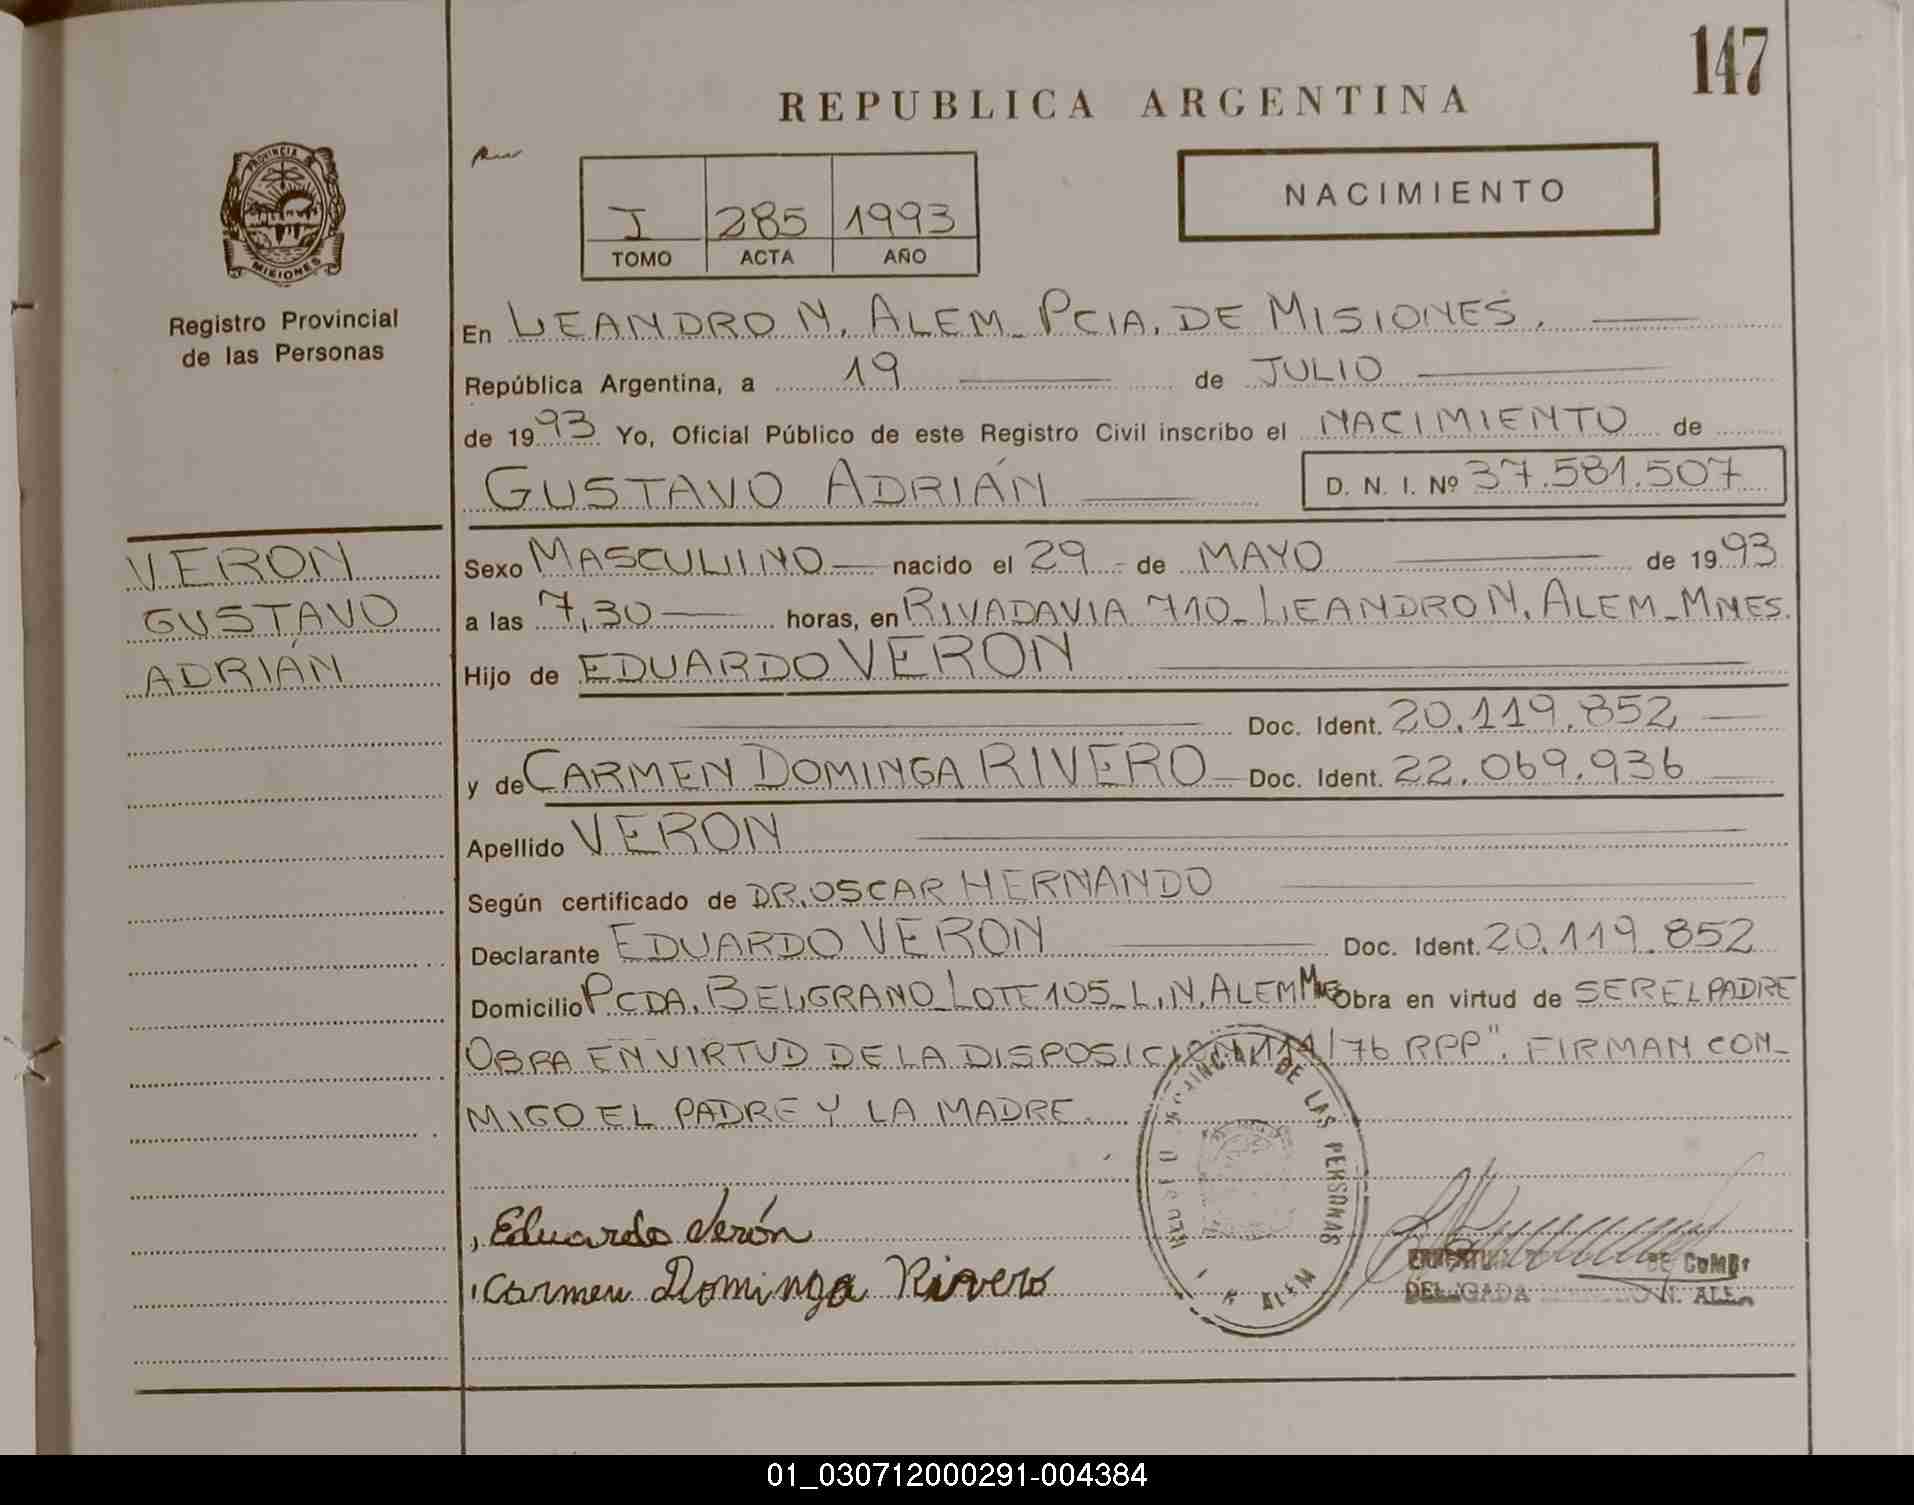 147
REPUBLICA ARGENTINA
PROVINCIA
MISIONES
Registro Provincial
de las Personas
I 285 1993
TOMO ACTA AÑO
NACIMIENTO
En LEANDRO N. ALEM_ PCIA. DE MISIONES.
República Argentina, a 19 de JULIO
de 1993 Yo, Oficial Público de este Registro Civil inscribo el NACIMIENTO de
GUSTAVO ADRIÁN D. N. I. Nº 37.581.507
VERON
GUSTAVO
ADRIÁN
Sexo MASCULINO nacido el 29 de MAYO de 1993
a las 7,30 horas, en RIVADAVIA 710_ LEANDRO N. ALEM_ MNES.
Hijo de EDUARDO VERON
Doc. Ident. 20.119.852
y de CARMEN DOMINGA RIVERO Doc. Ident. 22.069.936
Apellido VERON
Según certificado de DR. OSCAR HERNANDO
Declarante EDUARDO VERON Doc. Ident. 20.119.852
Domicilio PCDA. BELGRANO_ LOTE 105_ L.N. ALEM MNES Obra en virtud de SER EL PADRE
OBRA EN VIRTUD DE LA DISPOSICION 111/76 RPP". FIRMAN CON_
MIGO EL PADRE Y LA MADRE.
Eduardo Verón
Carmen Dominga Rivero
DE LAS PERSONAS
ALEM
01_030712000291-004384